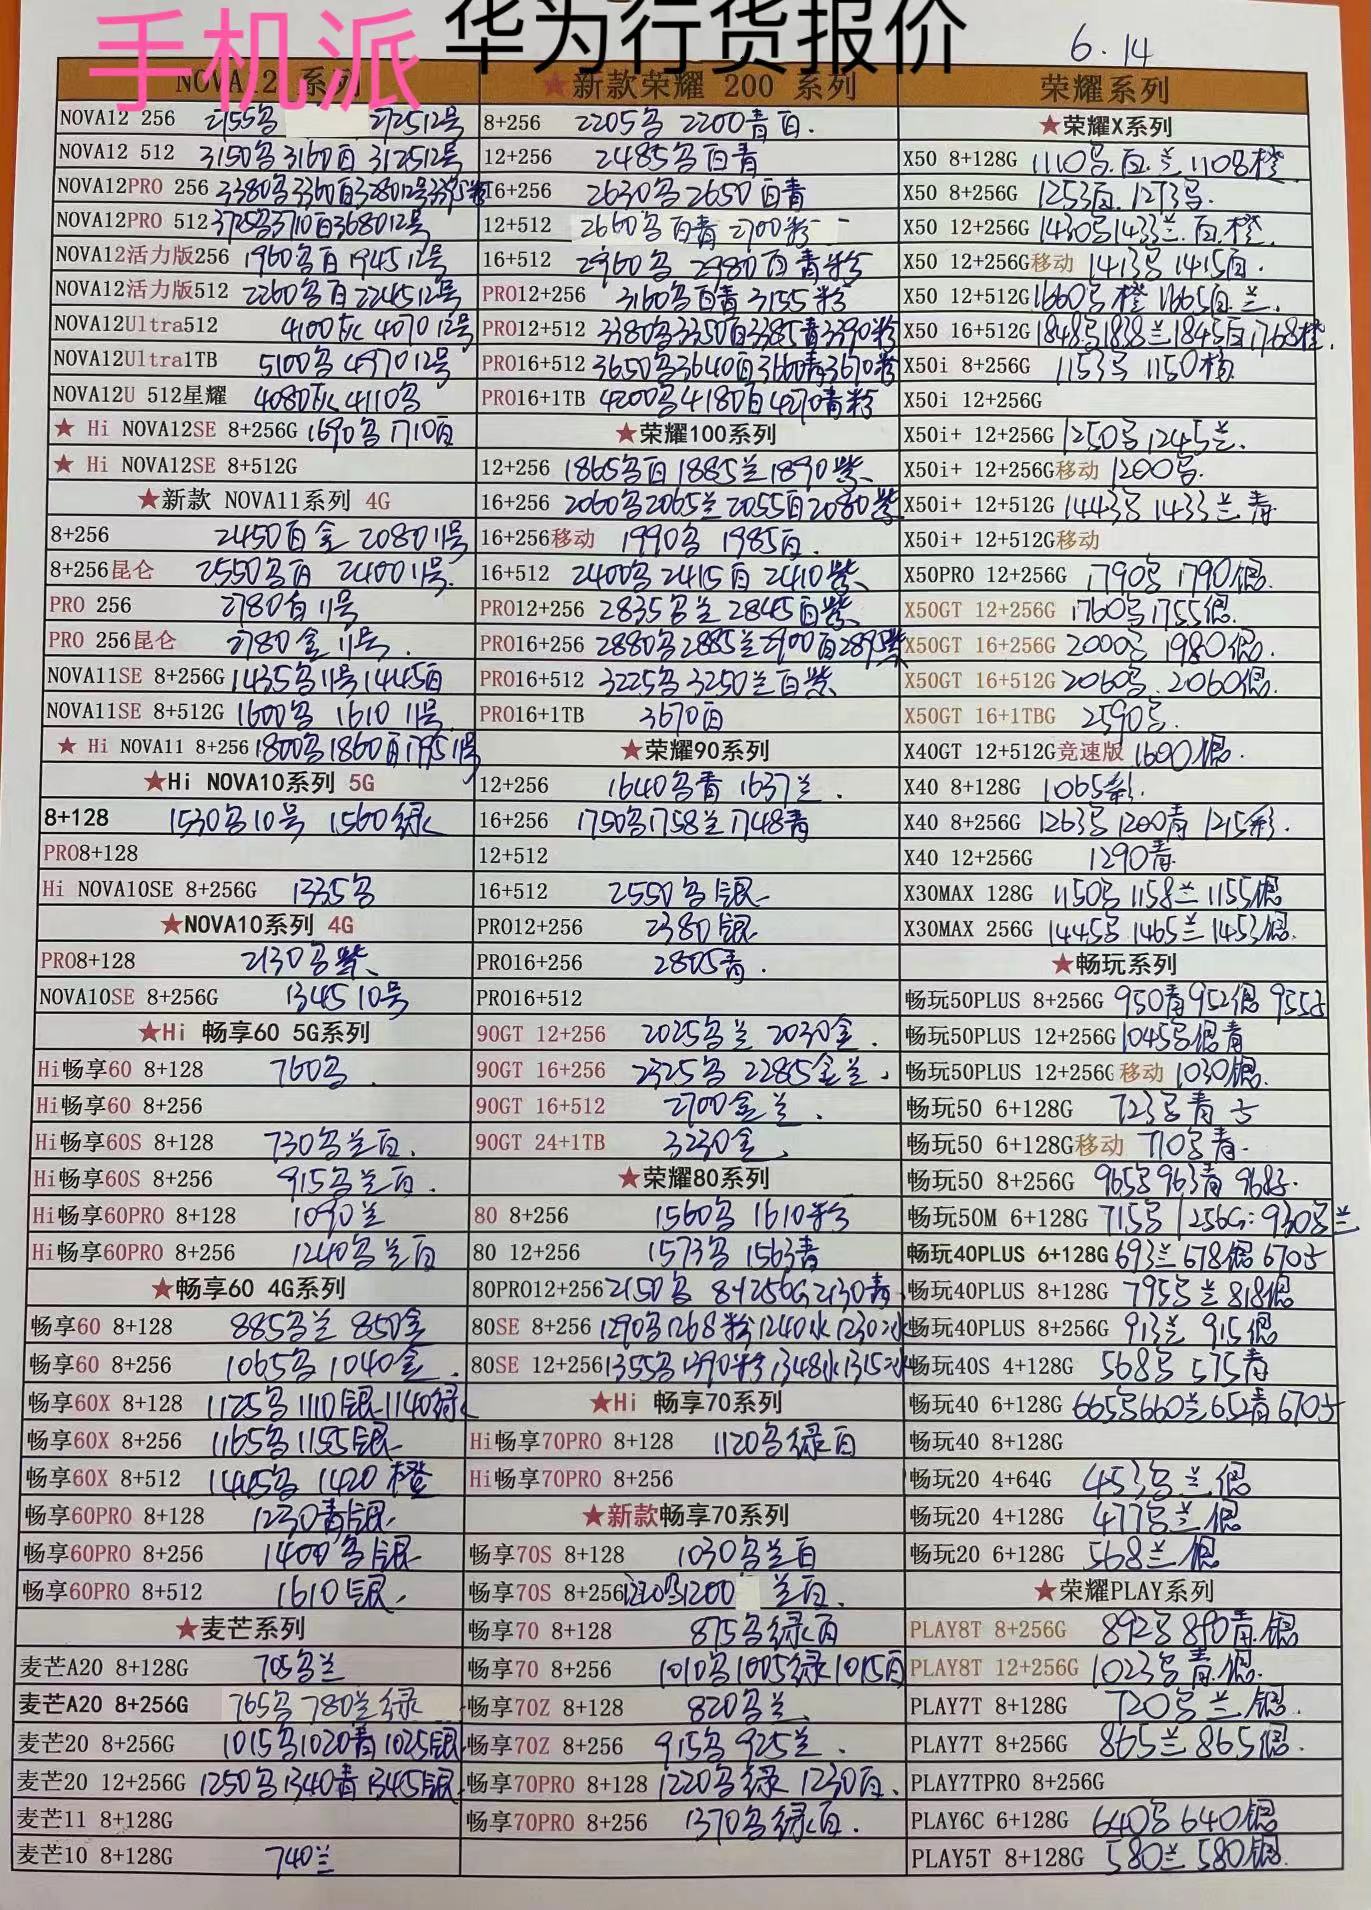 手机派
华为行货报价
6.14
NOVA12 系列
NOVA12 256 2155名 272512号
NOVA12 512 3150名3160白 312512号
NOVA12PRO 256 3380名3360白328012号3395
NOVA12PRO 512 3725名3710白368012号
NOVA12活力版256 1960名白 194512号
NOVA12活力版512 2260名白 224512号
NOVA12Ultra512 4100灰 407012号
NOVA12Ultra1TB 5100名 497012号
NOVA12U 512星耀 4080灰 4110名
★ Hi NOVA12SE 8+256G 1690名 1710白
★ Hi NOVA12SE 8+512G
★新款 NOVA11系列 4G
8+256 2450白金 208011号
8+256昆仑 2550名白 240011号.
PRO 256 2780 11号
PRO 256昆仑 2780金 11号.
NOVA11SE 8+256G 1435名11号1445白
NOVA11SE 8+512G 1600名 1610 11号
★ Hi NOVA11 8+256 1800名1860白179511号
★Hi NOVA10系列 5G
8+128 1530名10号 1560绿
PRO8+128
Hi NOVA10SE 8+256G 1335名
★NOVA10系列 4G
PRO8+128 2130名紫
NOVA10SE 8+256G 134510号
★Hi 畅享60 5G系列
Hi畅享60 8+128 760名.
Hi畅享60 8+256
Hi畅享60S 8+128 730名兰白.
Hi畅享60S 8+256 915名兰白.
Hi畅享60PRO 8+128 1090兰
Hi畅享60PRO 8+256 1240名兰白
★畅享60 4G系列
畅享60 8+128 885名兰 850金
畅享60 8+256 1065名 1040金.
畅享60X 8+128 1125名1110银1140绿
畅享60X 8+256 1165名1155银
畅享60X 8+512 1445名 1420橙
畅享60PRO 8+128 1230青银
畅享60PRO 8+256 1400名银
畅享60PRO 8+512 1610银.
★麦芒系列
麦芒A20 8+128G 705名兰
麦芒A20 8+256G 765名780兰绿
麦芒20 8+256G 1015名1020青1025银
麦芒20 12+256G 1250名1340青1345银
麦芒11 8+128G
麦芒10 8+128G 740兰
★新款荣耀 200 系列
8+256 2205名 2200青白.
12+256 2485名白青
16+256 2630名2650白青
12+512 2660名白青 2700粉
16+512 2960名 2980白青粉
PRO12+256 3160名白青 3155粉
PRO12+512 3380名3350白3385青3390粉
PRO16+512 3650名3640白3660青3670粉
PRO16+1TB 4200名4180白4270青粉
★荣耀100系列
12+256 1865名白1885兰1890紫
16+256 2060名2065兰2055白2080紫
16+256移动 1990名 1985白.
16+512 2400名2415白2410紫
PRO12+256 2835名兰 2845白紫
PRO16+256 2880名2885兰2900白2895紫
PRO16+512 3225名3250兰白紫
PRO16+1TB 3670白
★荣耀90系列
12+256 1640名青 1637兰.
16+256 1750名1758兰1748青
12+512
16+512 2550名银
PRO12+256 2380银
PRO16+256 2805青.
PRO16+512
90GT 12+256 2025名兰 2030金.
90GT 16+256 2325名 2285金兰.
90GT 16+512 2700金兰.
90GT 24+1TB 3230金
★荣耀80系列
80 8+256 1560名 1610粉
80 12+256 1573名 1563青
80PRO12+256 2150名 8+256G2130青
80SE 8+256 1290名1268粉1240水1230冰
80SE 12+256 1355名1390粉1348水1315冰
★Hi 畅享70系列
Hi畅享70PRO 8+128 1120名绿白
Hi畅享70PRO 8+256
★新款畅享70系列
畅享70S 8+128 1030名兰白
畅享70S 8+256 1220名1200 兰白.
畅享70 8+128 875名绿白
畅享70 8+256 1010名1005绿1015白
畅享70Z 8+128 820名兰
畅享70Z 8+256 915名 925兰.
畅享70PRO 8+128 1220名绿 1230白.
畅享70PRO 8+256 1370名绿白.
荣耀系列
★荣耀X系列
X50 8+128G 1110名.白.兰 1108橙
X50 8+256G 1253白. 1273名.
X50 12+256G 1430名1433兰.白.橙.
X50 12+256G移动 1413名 1415白.
X50 12+512G 1660名 橙 1665白.兰.
X50 16+512G 1848名1838兰1845白1768橙.
X50i 8+256G 1153名 1150
X50i 12+256G
X50i+ 12+256G 1250名1245兰.
X50i+ 12+256G移动 1200名.
X50i+ 12+512G 1443名 1433兰青
X50i+ 12+512G移动
X50PRO 12+256G 1790名 1790银.
X50GT 12+256G 1760名1755银.
X50GT 16+256G 2000名 1980银.
X50GT 16+512G 2060名. 2060银.
X50GT 16+1TBG 2590名.
X40GT 12+512G竞速版 1600银.
X40 8+128G 1065彩.
X40 8+256G 1263名1200青 1215彩.
X40 12+256G 1290青
X30MAX 128G 1150名1158兰1155银
X30MAX 256G 1445名1465兰1453银.
★畅玩系列
畅玩50PLUS 8+256G 950青952银 955
畅玩50PLUS 12+256G 1045名银青
畅玩50PLUS 12+256G 移动 1030银.
畅玩50 6+128G 723名青
畅玩50 6+128G移动 710名青.
畅玩50 8+256G 965名963青 968
畅玩50M 6+128G 715名/256G:930名兰
畅玩40PLUS 6+128G 693兰 678银 670
畅玩40PLUS 8+128G 795名 兰 818银
畅玩40PLUS 8+256G 913兰 915银
畅玩40S 4+128G 568名 575青
畅玩40 6+128G 665名660兰652青670
畅玩40 8+128G
畅玩20 4+64G 453名 兰 银
畅玩20 4+128G 477名兰银
畅玩20 6+128G 568兰 银
★荣耀PLAY系列
PLAY8T 8+256G 892名890青.银
PLAY8T 12+256G 1023名青.银.
PLAY7T 8+128G 720名兰.银.
PLAY7T 8+256G 865兰865银.
PLAY7TPRO 8+256G
PLAY6C 6+128G 640名 640银
PLAY5T 8+128G 580兰 580银.